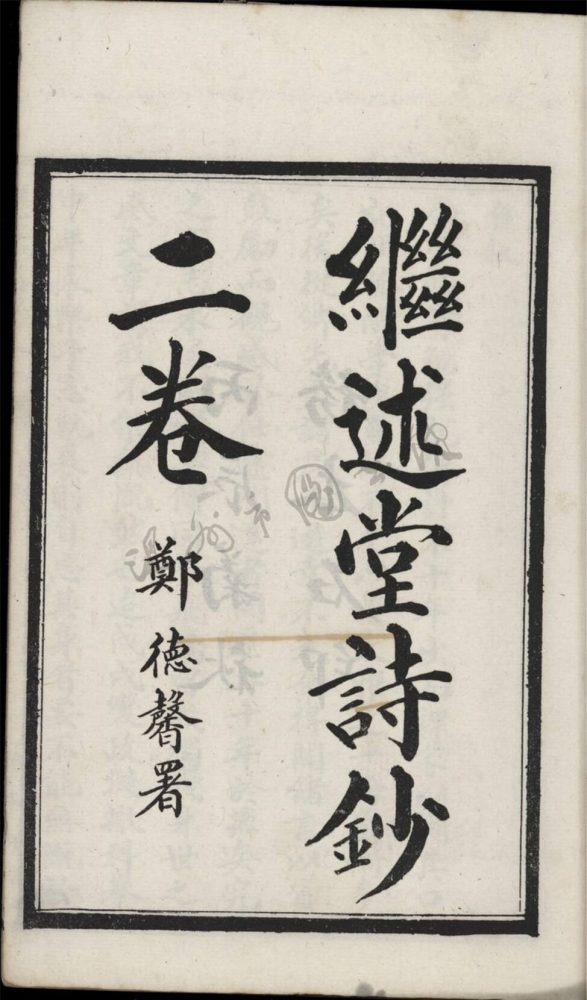 繼述堂詩鈔
二卷
鄭德馨署